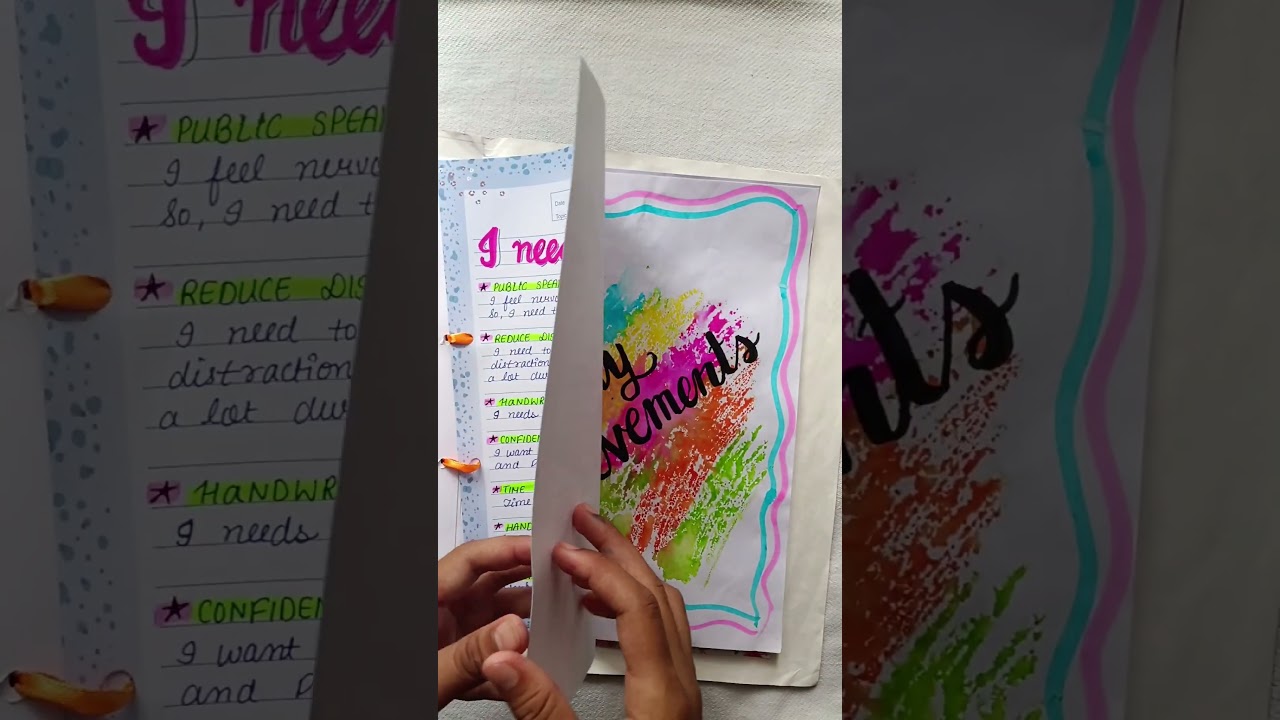 Date
Topic
I need
★ PUBLIC SPEA
I feel nervo
So, I need t
★ REDUCE DIS
I need to
distraction
a lot du
★ HANDWR
I needs
★ CONFIDEN
I want
and P
★ TIME
Time
★ HAND
y
vements